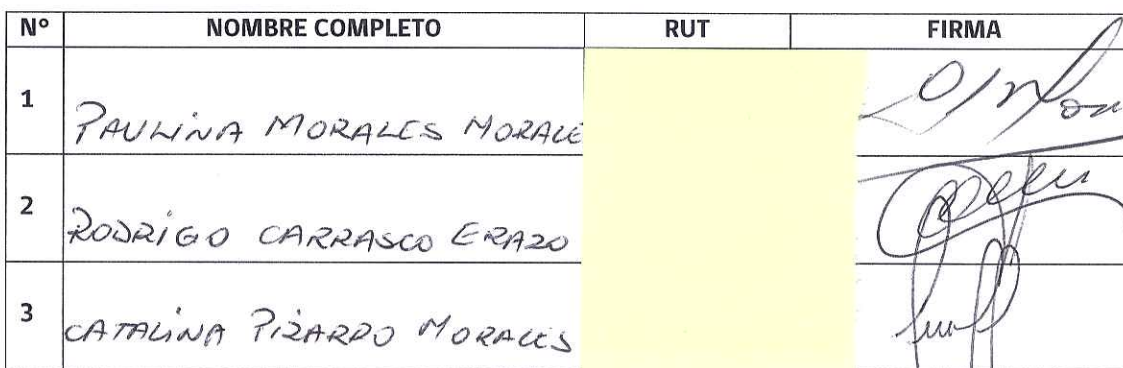 N° NOMBRE COMPLETO RUT FIRMA
1 PAULINA MORALES MORALE
2 RODRIGO CARRASCO ERAZO
3 CATALINA PIZARRO MORALES